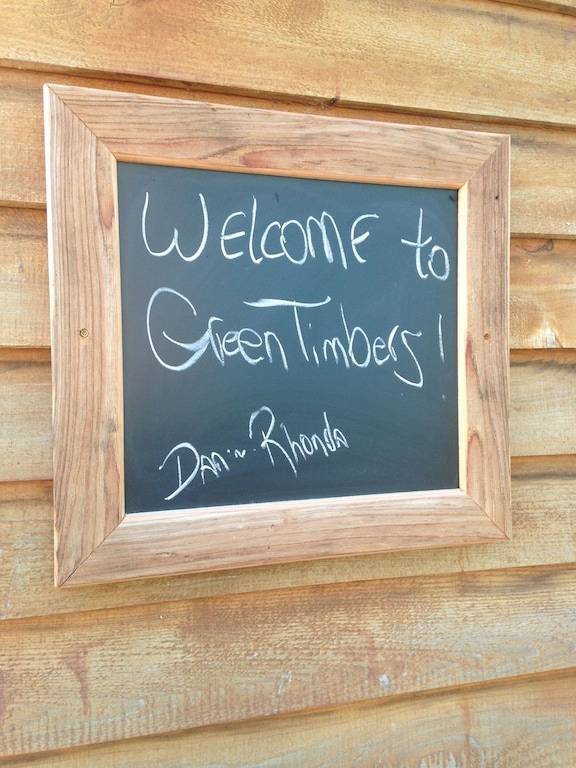 Welcome to
Green Timbers!
Dan 'n' Rhonda